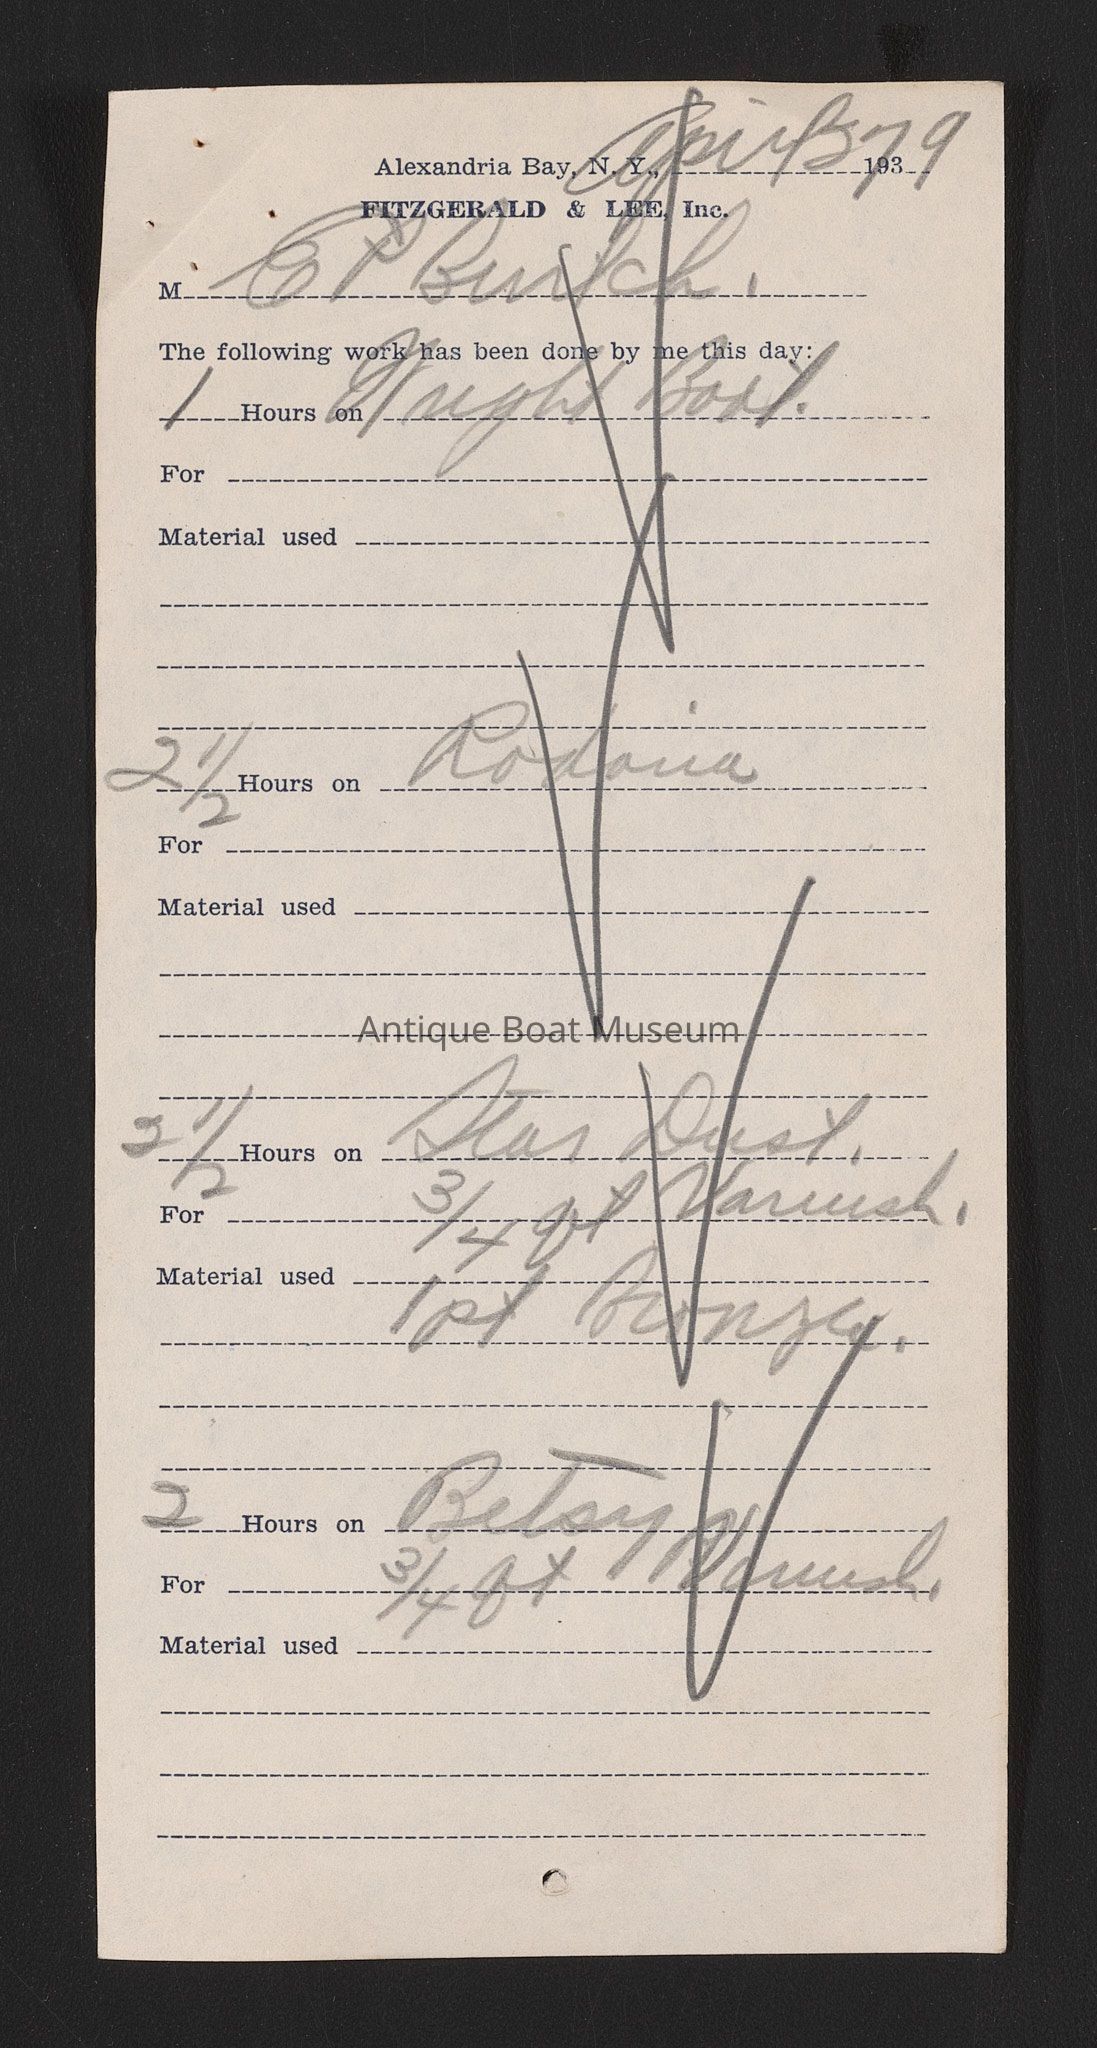 Alexandria Bay, N. Y., April 193 9
FITZGERALD & LEE, Inc.
M E P Burtch.
The following work has been done by me this day:
1 Hours on Wright Boat.
For
Material used
2 1/2 Hours on Rodonia
For
Material used
Antique Boat Museum
2 1/2 Hours on Star Dust.
For 3/4 qt Varnish.
Material used
1 pt Bronze.
2 Hours on Betsy
For 3/4 qt Varnish.
Material used